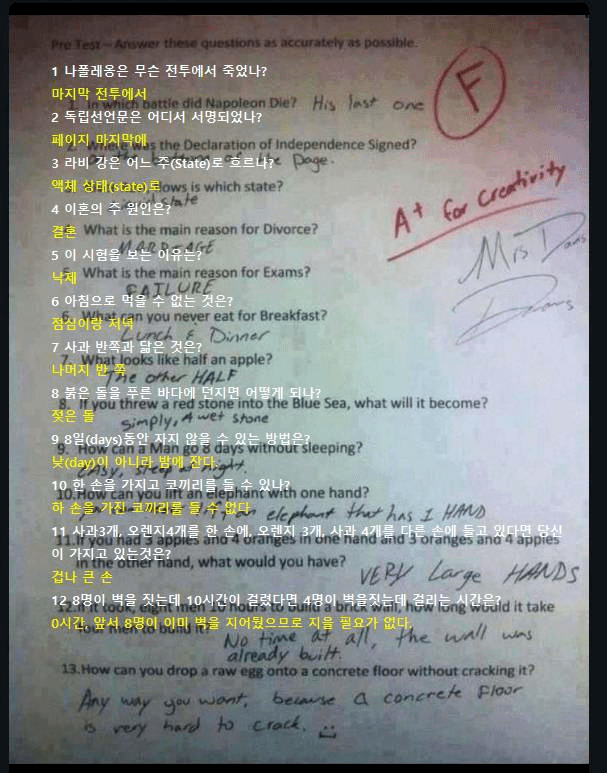 Pre Test – Answer these questions as accurately as possible.
F
1 나폴레옹은 무슨 전투에서 죽었나?
마지막 전투에서
1. In which battle did Napoleon Die? His last one
2 독립선언문은 어디서 서명되었나?
페이지 마지막에
was the Declaration of Independence Signed?
the Page.
3 라비 강은 어느 주(State)로 흐르나?
액체 상태(state)로
lows is which state?
state
A+ for Creativity
4 이혼의 주 원인은?
결혼
What is the main reason for Divorce?
MARRIAGE
Mrs Davis
5 이 시험을 보는 이유는?
낙제
What is the main reason for Exams?
FAILURE
6 아침으로 먹을 수 없는 것은?
점심이랑 저녁
6. What can you never eat for Breakfast?
Lunch & Dinner
7 사과 반쪽과 닮은 것은?
나머지 반 쪽
7. What looks like half an apple?
The other HALF
8 붉은 돌을 푸른 바다에 던지면 어떻게 되나?
젖은 돌
8. If you threw a red stone into the Blue Sea, what will it become?
simply, A wet stone
9 8일(days)동안 자지 않을 수 있는 방법은?
낮(day)이 아니라 밤에 잔다.
9. How can a Man go 8 days without sleeping?
10 한 손을 가지고 코끼리를 들 수 있나?
하 손을 가진 코끼리를 들 수 없다
10. How can you lift an elephant with one hand?
elephant that has 1 HAND
11 사과3개, 오렌지4개를 한 손에, 오렌지 3개, 사과 4개를 다른 손에 들고 있다면 당신
이 가지고 있는것은?
겁나 큰 손
11. If you had 3 apples and 4 oranges in one hand and 3 oranges and 4 apples
in the other hand, what would you have?
VERY Large HANDS
12 8명이 벽을 짓는데 10시간이 걸렸다면 4명이 벽을짓는데 걸리는 시간은?
0시간, 앞서 8명이 이미 벽을 지어뒀으므로 지을 필요가 없다.
12. If it took, eight men 10 hours to build a brick wall, how long would it take
four men to build it?
No time at all, the wall was
already built.
13. How can you drop a raw egg onto a concrete floor without cracking it?
Any way you want, because a concrete floor
is very hard to crack.